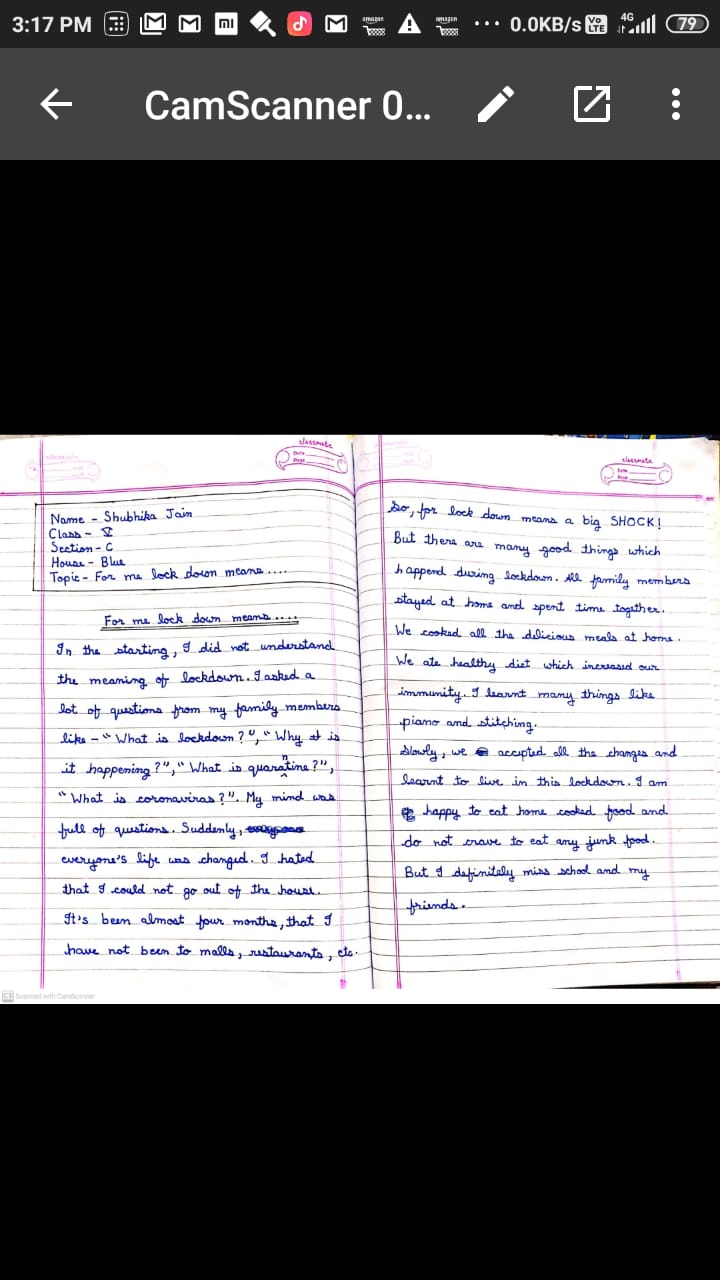 3:17 PM
mi
amazon
amazon
... 0.0KB/s
Vo LTE
4G
79
CamScanner 0...
classmate
Date
Page
Name - Shubhika Jain
Class - V
Section - C
House - Blue
Topic - For me lock down means ....
For me lock down means ....
In the starting, I did not understand
the meaning of lockdown. I asked a
lot of questions from my family members
like - "What is lockdown?", "Why it is
it happening?", "What is quarantine?",
"What is coronavirus?". My mind was
full of questions. Suddenly,
everyone's life was changed. I hated
that I could not go out of the house.
It's been almost four months, that I
have not been to malls, restaurants, etc.
classmate
Date
Page
So, for lock down means a big SHOCK!
But there are many good things which
happend during lockdown. All family members
stayed at home and spent time together.
We cooked all the delicious meals at home.
We ate healthy diet which increased our
immunity. I learnt many things like
piano and stitching.
Slowly, we accepted all the changes and
learnt to live in this lockdown. I am
happy to eat home cooked food and
do not crave to eat any junk food.
But I definitely miss school and my
friends.
CS Scanned with CamScanner